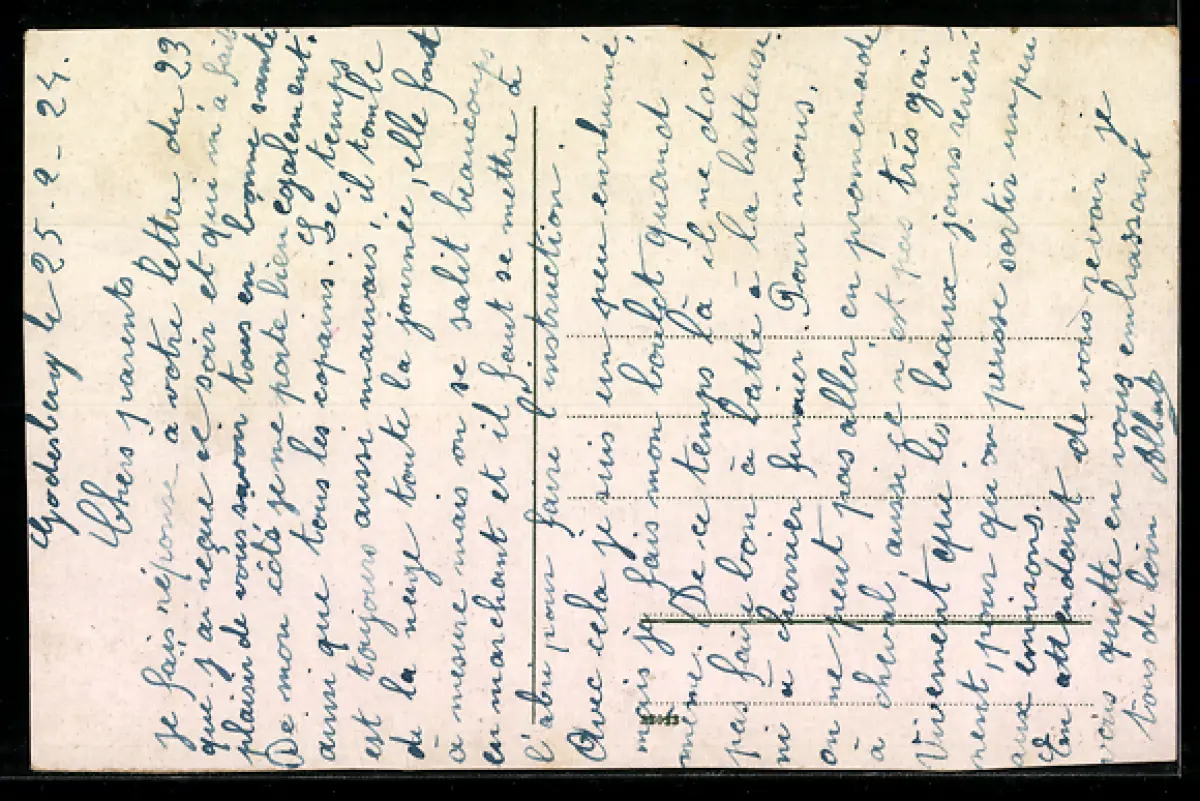 Godesberg le 25-2-24.
Chers parents
je fais réponse à votre lettre du 23
que j'ai reçue ce soir et qui m'a fait
plaisir de vous savoir tous en bonne santé
De mon côté je me porte bien également.
ainsi que tous les copains. Le temps
est toujours aussi mauvais, il tombe
de la neige toute la journée, elle fond
à mesure mais on se salit beaucoup
en marchant et il faut se mettre à
l'abri pour faire l'instruction.
Avec cela je suis un peu enrhumé,
mais je fais mon boulot quand
même. De ce temps là il ne doit
pas faire bon à batte à la batteuse.
ni a charrier fumier. Pour nous,
on ne peut pas aller en promenade
à cheval, aussi ce n'est pas très gai
Vivement que les beaux jours revien-
nent, pour qu'on puisse sortir un peu
aux environs.
En attendant de vous revoir je
vous quitte en vous embrassant
tous de loin Albert